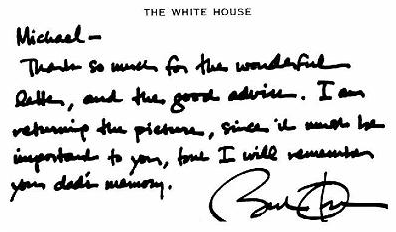 THE WHITE HOUSE
Michael —
Thanks so much for the wonderful
letter, and the good advice. I am
returning the picture, since it must be
important to you, but I will remember
your dad's memory.